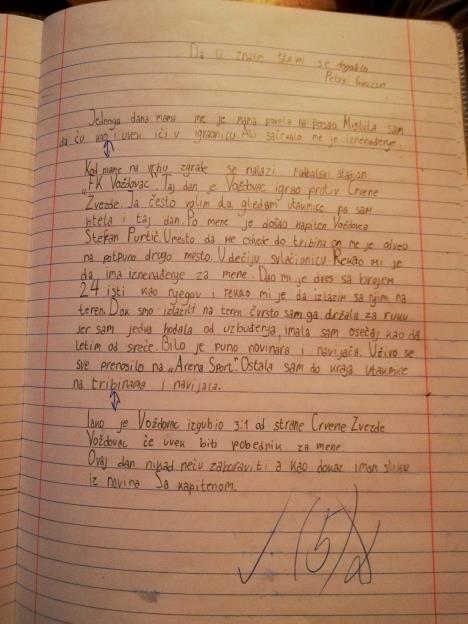 Da li znate šta mi se dogodilo
Petra
Jednoga dana mama me je mama povela na posao. Mislila sam
da ću kao i uvek ići v igraonicu. Ali sačekalo me je iznenađenje.
Kod mame na vrhu zgrade se nalazi fudbalski stadion
„FK Voždovac". Taj dan je Voždovac igrao protiv Crvene
Zvezde. Ja često volim da gledam utakmice pa sam
htela i taj dan. Po mene je došao kapiten Voždovca
Stefan Purtić. Umesto da me odvede do tribina on me je odveo
na potpuno drugo mesto. U dečiju svlačionicu. Rekao mi je
da ima iznenađenje za mene. Dao mi je dres sa brojem
24 isti kao njegov i rekao mi je da izlazim sa njim na
teren. Dok smo izlazili na teren čvrsto sam ga držala za ruku
jer sam jedva hodala od uzbuđenja, imala sam osećaj kao da
letim od sreće. Bilo je puno novinara i navijača. Uživo se
sve prenosilo na „Arena Sport." Ostala sam do kraja utakmice
na tribinama i navijala.
Iako je Voždovac izgubio 3:1 od strane Crvene Zvezde
Voždovac će uvek biti pobednik za mene
Ovaj dan nikad neću zaboraviti a kao dokaz imam sliku
iz novina sa kapitenom.
(5)